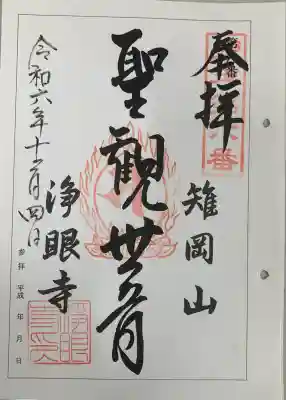 奉拝
雉岡山
聖觀世音
浄眼寺
令和六年十二月四日
参拝 平成 年 月 日